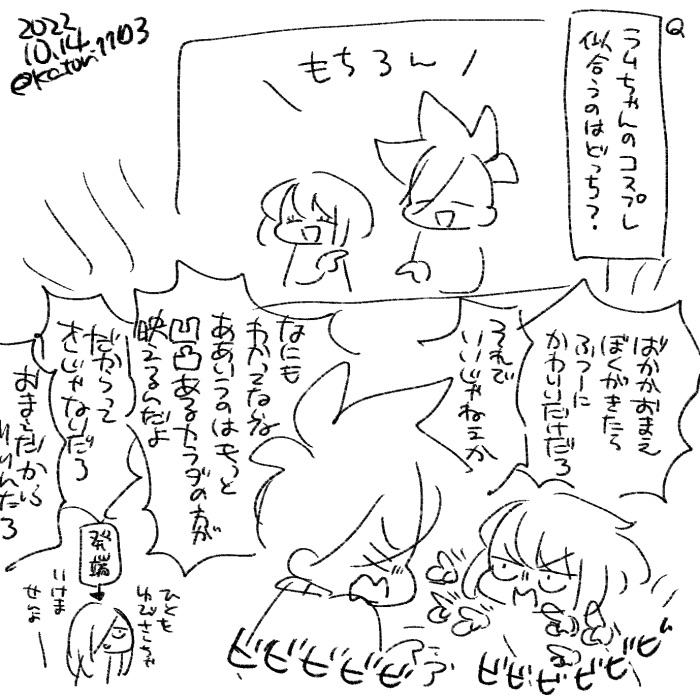 Q
ラムちゃんのコスプレ
似合うのはどっち?
2022
10.14
@katori1103
もちろん
ばかかおまえ
ぼくがきたら
ふつーに
かわいいだけだろ
それで
いいじゃねェか
なにも
わかってないな
ああいうのはもっと
凹凸あるカラダのが
映えるんだよ
だからって
オレじゃないだろ
おまえだから
いいんだろ
発端
ひとを
ゆびさしちゃ
いけま
せんよ
ビビビビビビ
ビビビビビビビ